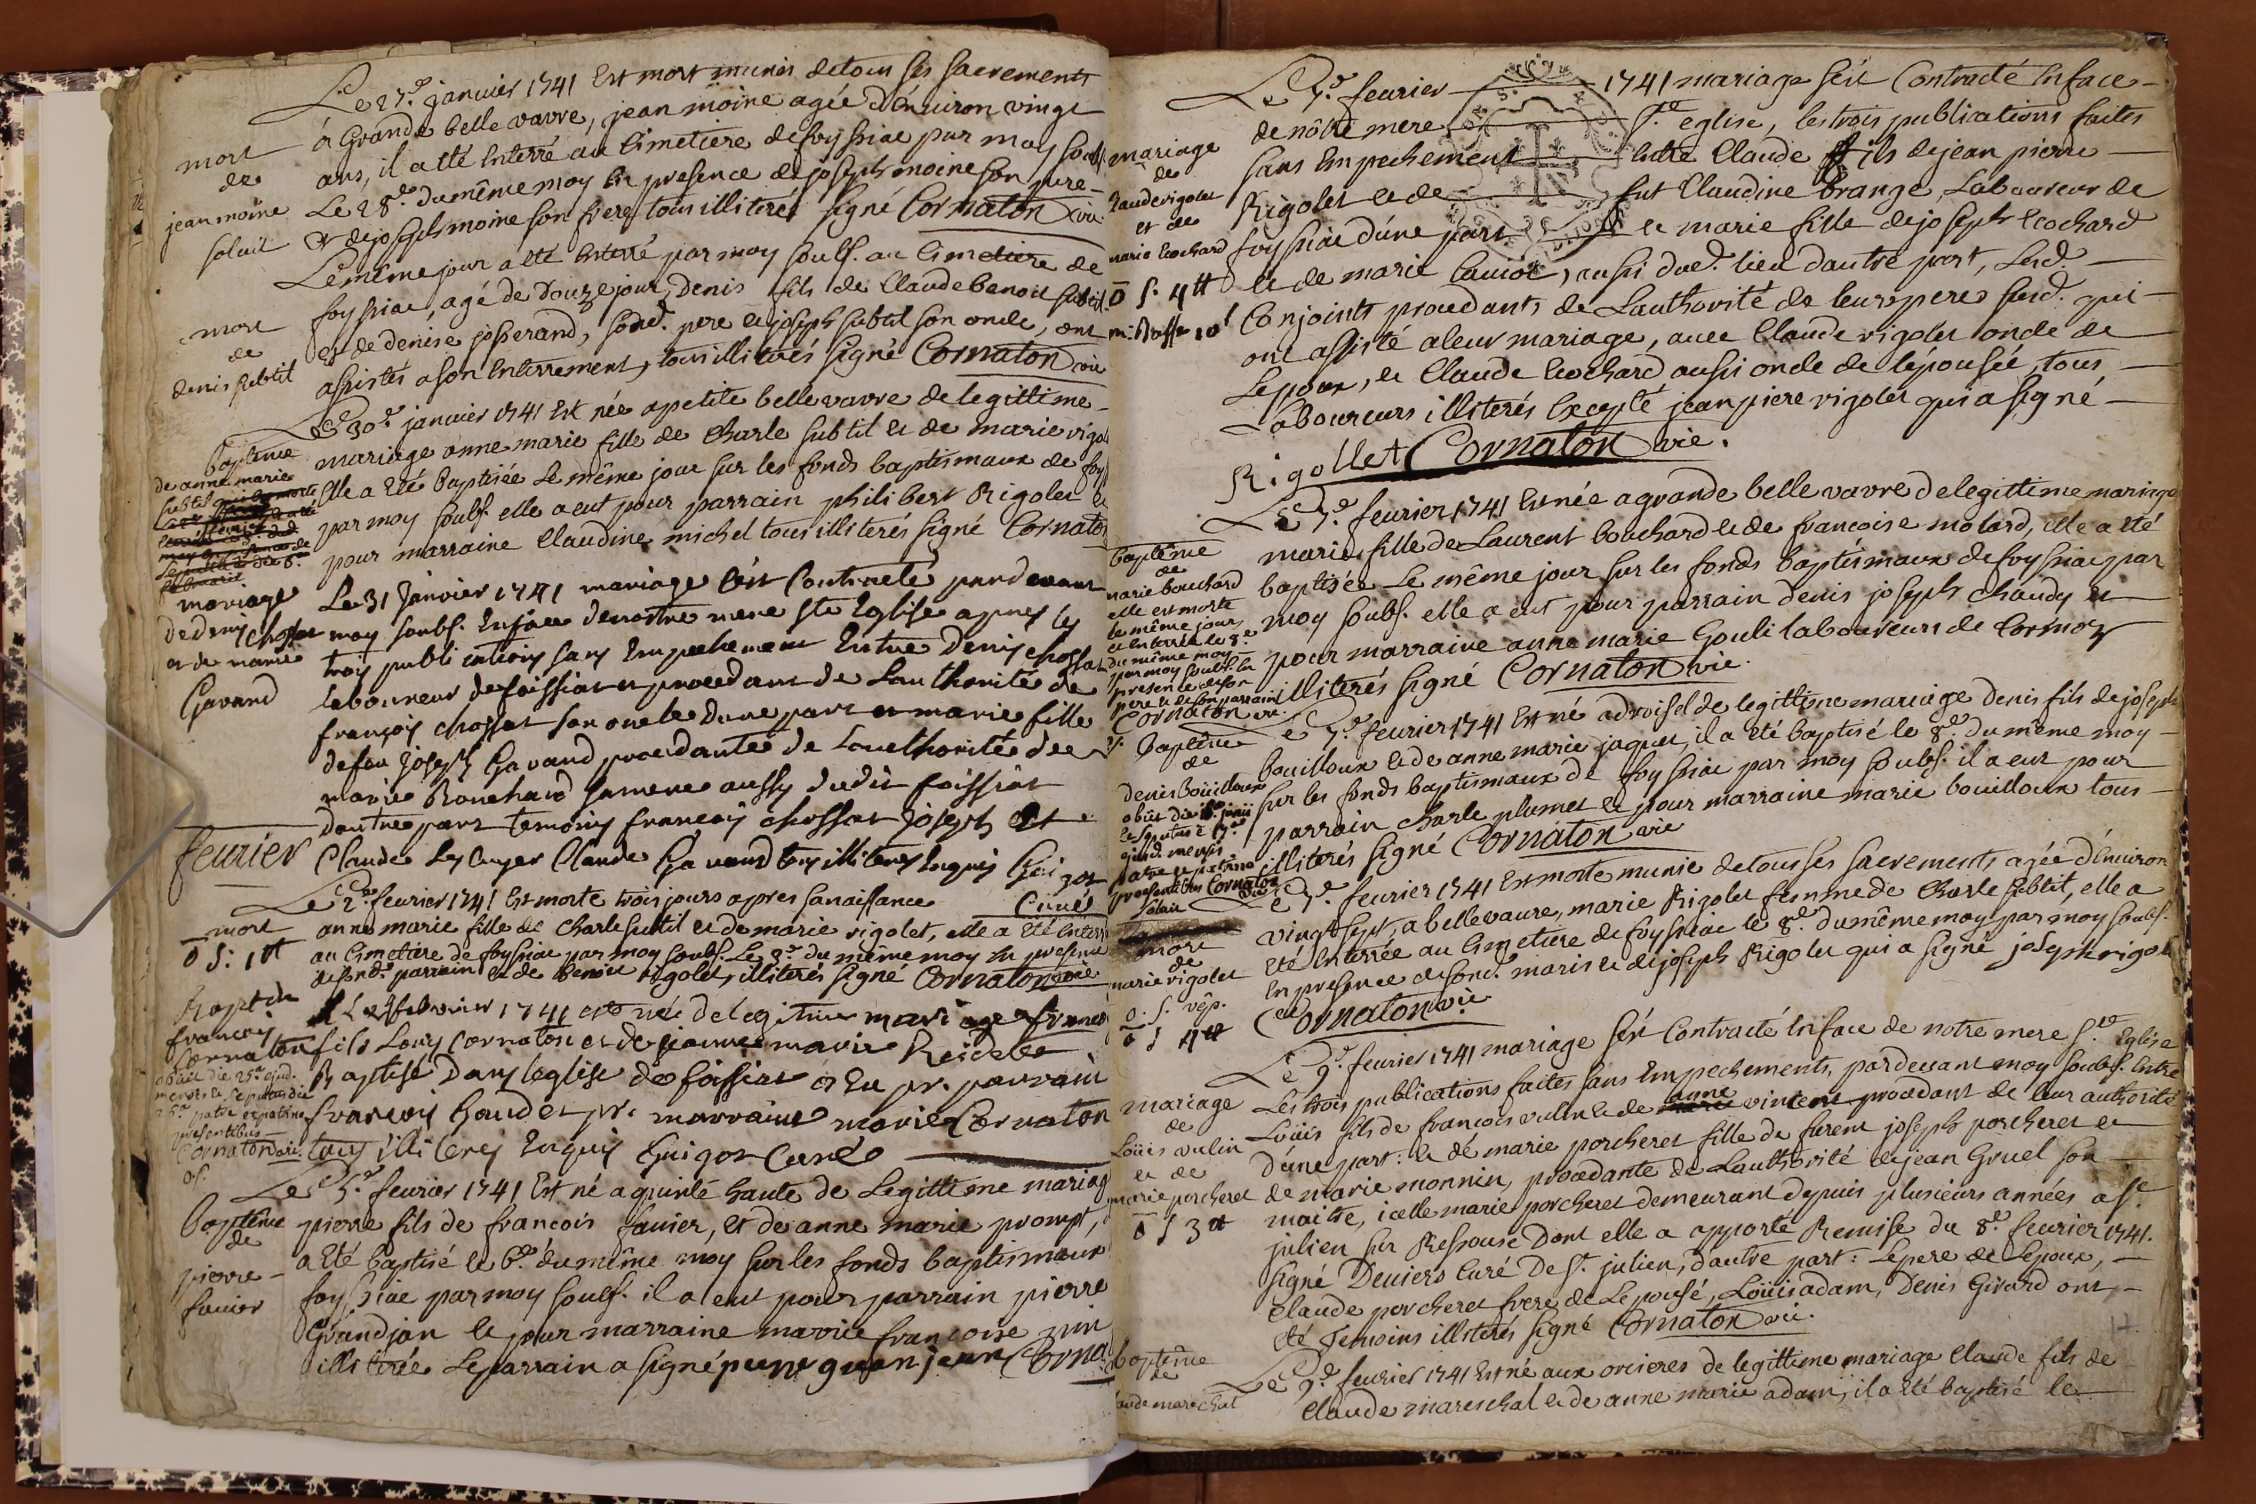 Le 27.e janvier 1741 Est mort munis de tous ses sacrements
à Grande belle vavre, jean moine agée d'Environ vingt
ans, il a été Enterré au Cimetiere de foyssiac par moy soubs.
Le 28.e du même moy En presence de joseph moine son pere
et de joseph moine son frere tous illiterés signé Cornaton vic.
mort
de
jean moine
soluit
Le même jour a été Enterré par moy soubs. au Cimetiere de
foyssiac, agé de Douze jours, Denis fils de Claude benoit subtil
et de denise josserand, sond. pere et joseph subtil son oncle, ont
assistés a son Enterrement, tous illiterés signé Cornaton vic
mort
de
denis subtil
Le 30.e janvier 1741 Est née a petite belle vavre de legittime
mariage anne marie fille de Charle subtil et de marie rigol
Elle a été baptisée Le même jour sur les fonds baptismaux de foy
par moy soubs. elle a eut pour parrain philibert Rigolet et
pour marraine Claudine michel tous illiterés signé Cornaton
baptême
de anne marie
subtil
Le 31 Janvier 1741 mariage a été Contracté pardevant
moy soubs. En face de nostre mere ste Eglise apres les
trois publications sans Empechement Entre Denis chossat
laboureur de foissiat et procedant de Lauthorité de
françois chossat son oncle dune part et marie fille
de feu Joseph Gavand procedante de Lauthorité de
marie Bouchard sa mere aussy dudit foissiat
dautre part temoins françois chossat Joseph et
Claude Claude Gavand tous illiteres Enquis Guigot
Curé
mariage
de deny chossat
et de marie
Gavand
feurier
Le 2.e feurier 1741 Est morte trois jours apres sa naissance
anne marie fille de Charle subtil et de marie rigolet, elle a été Enterré
au Cimetiere de foyssiac par moy soubs. Le 3.e du même moy En presence
de sond. parrain et de benoit rigolet, illiterés signé Cornaton vic
mort
o s: 1tt
Le febvrier 1741 est né de legitime mariage francois
fils Louy Cornaton et de jeanne marie
Baptise Dans leglise de foissiat a Eu pr. parrain
françois Gaudet pr. marraine marie Cornaton
tous illiterez Enquis Guigot Curé
Baptise
francois
Cornaton
obiit die 25.a ejusd.
mensis et sepultus die
patre et patrino
presentibus
Cornaton vic.
Le 5.e feurier 1741 Est né a quinte haute de Legittime mariag
pierre fils de francois favier, et de anne marie prompt,
a été baptisé le 6.e du même moy sur les fonds baptismaux
foyssiac par moy soubs. il a eut pour parrain pierre
Grandjan et pour marraine marie francoise
illiterée Le parrain a signé Corna
Baptême
de
pierre
favier
Le 7.e feurier 1741 mariage s'est Contracté En face
de nôtre mere s.te eglise, les trois publications faites
sans Empechement Entre Claude fils de jean pierre
Rigolet et de fut Claudine Orange, Laboureur de
foyssiac d'une part et marie fille de joseph Ecochard
et de marie Cauiot, aussi dud. lieu d'autre part, Lesd.
Conjoints procedants de Lauthorité de leurs peres susd. qui
ont assisté a leur mariage, avec Claude rigolet oncle de
Lepoux, et Claude Ecochard aussi oncle de l'épousée, tous
Laboureurs illiterés Excepté jean piere rigolet qui a signé
Rigollet Cornaton vic.
mariage
de
Claude rigolet
et de
marie Ecochard
o s. 4tt
Le 7.e feurier 1741 Est née a grande belle vavre de legittime mariage
marie, fille de Laurent bouchard et de francoise molard, elle a été
baptisée Le même jour sur les fonds baptismaux de foyssiac par
moy soubs. elle a eut pour parrain denis joseph Chaudy et
pour marraine anne marie Gouli laboureurs de Cormoz
illiterés signé Cornaton vic.
baptême
de
marie bouchard
elle est morte
le même jour
et enterrée le 8.e
du même moy
par moy soubs. En
presence de son
pere et de son parrain
Cornaton vic.
Le 7.e feurier 1741 Est né a droisel de legittime mariage Denis fils de joseph
bouilloux et de anne marie jaquet, il a été baptisé le 8.e du même moy
sur les fonds baptismaux de foyssiac par moy soubs. il a eut pour
parrain Charle plumet et pour marraine marie bouilloux tous
illiterés signé Cornaton vic
baptême
de
denis bouilloux
obiit die
et sepultus
ejusd. mensis
patre et patrino
presentibus Cornaton
vic.
Le 7.e feurier 1741 Est morte munie de tous ses sacrements agée d'Environ
vingt sept, a belle vavre, marie Rigolet femme de Charle subtil, elle a
été Enterrée au Cimetiere de foyssiac le 8.e du même moy par moy soubs.
En presence de sond. maris et de joseph Rigolet qui a signé joseph rigol
Cornaton vic
soluit
mort
de
marie rigolet
o. s. vêp.
o s 4tt
Le 9.e feurier 1741 mariage s'est Contracté En face de notre mere s.te Eglise
Les trois publications faites sans Empechements, pardevant moy soubs. Entre
Loüis fils de francois vulin et de anne vincent procedant de leur authorité
d'une part: et de marie porcheret fille de furent joseph porcheret et
de marie monnin, procedante de Lauthorité de jean Gruel son
maitre, icelle marie porcheret demeurant depuis plusieurs années a s.t
julien sur Ressouse Dont elle a apporté Remise du 8.e feurier 1741.
signé Deniers Curé De s.t julien, d'autre part: Le pere de Lepoux,
Claude porcheret frere de Lepousé, Loüis adam, Denis Girard ont
été Temoins illiterés signé Cornaton vic.
mariage
de
Loüis vulin
et de
marie porcheret
o s 3tt
Le 9.e feurier 1741 Est né aux orcieres de legittime mariage Claude fils de
Claude mareschal et de anne marie adam, il a été baptisé le
baptême
de
Claude marechal